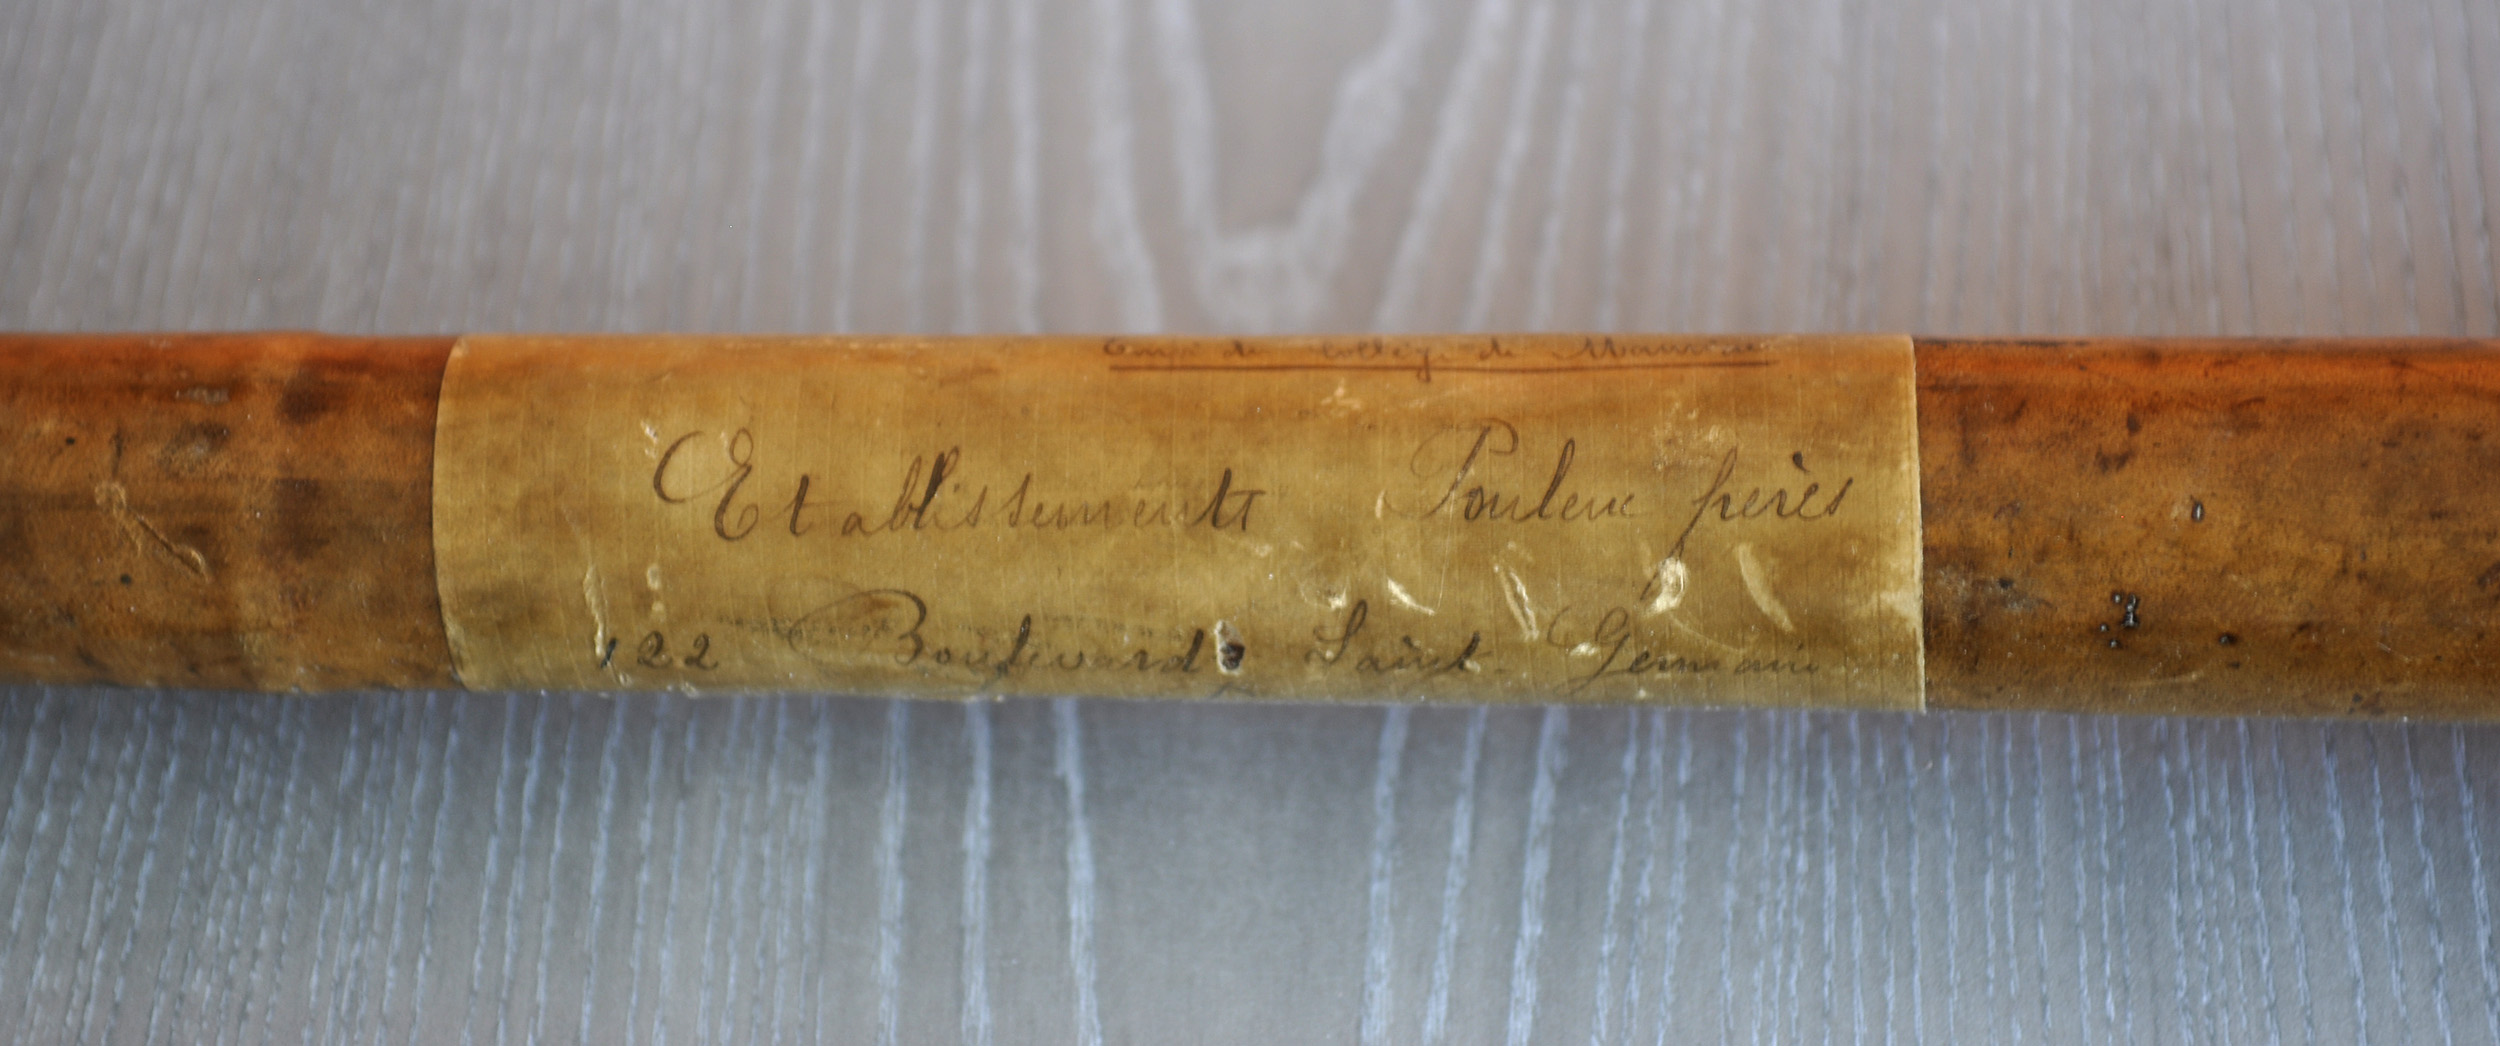 du Collège de
Etablissements Poulenc frères
122 Boulevard Saint-Germain